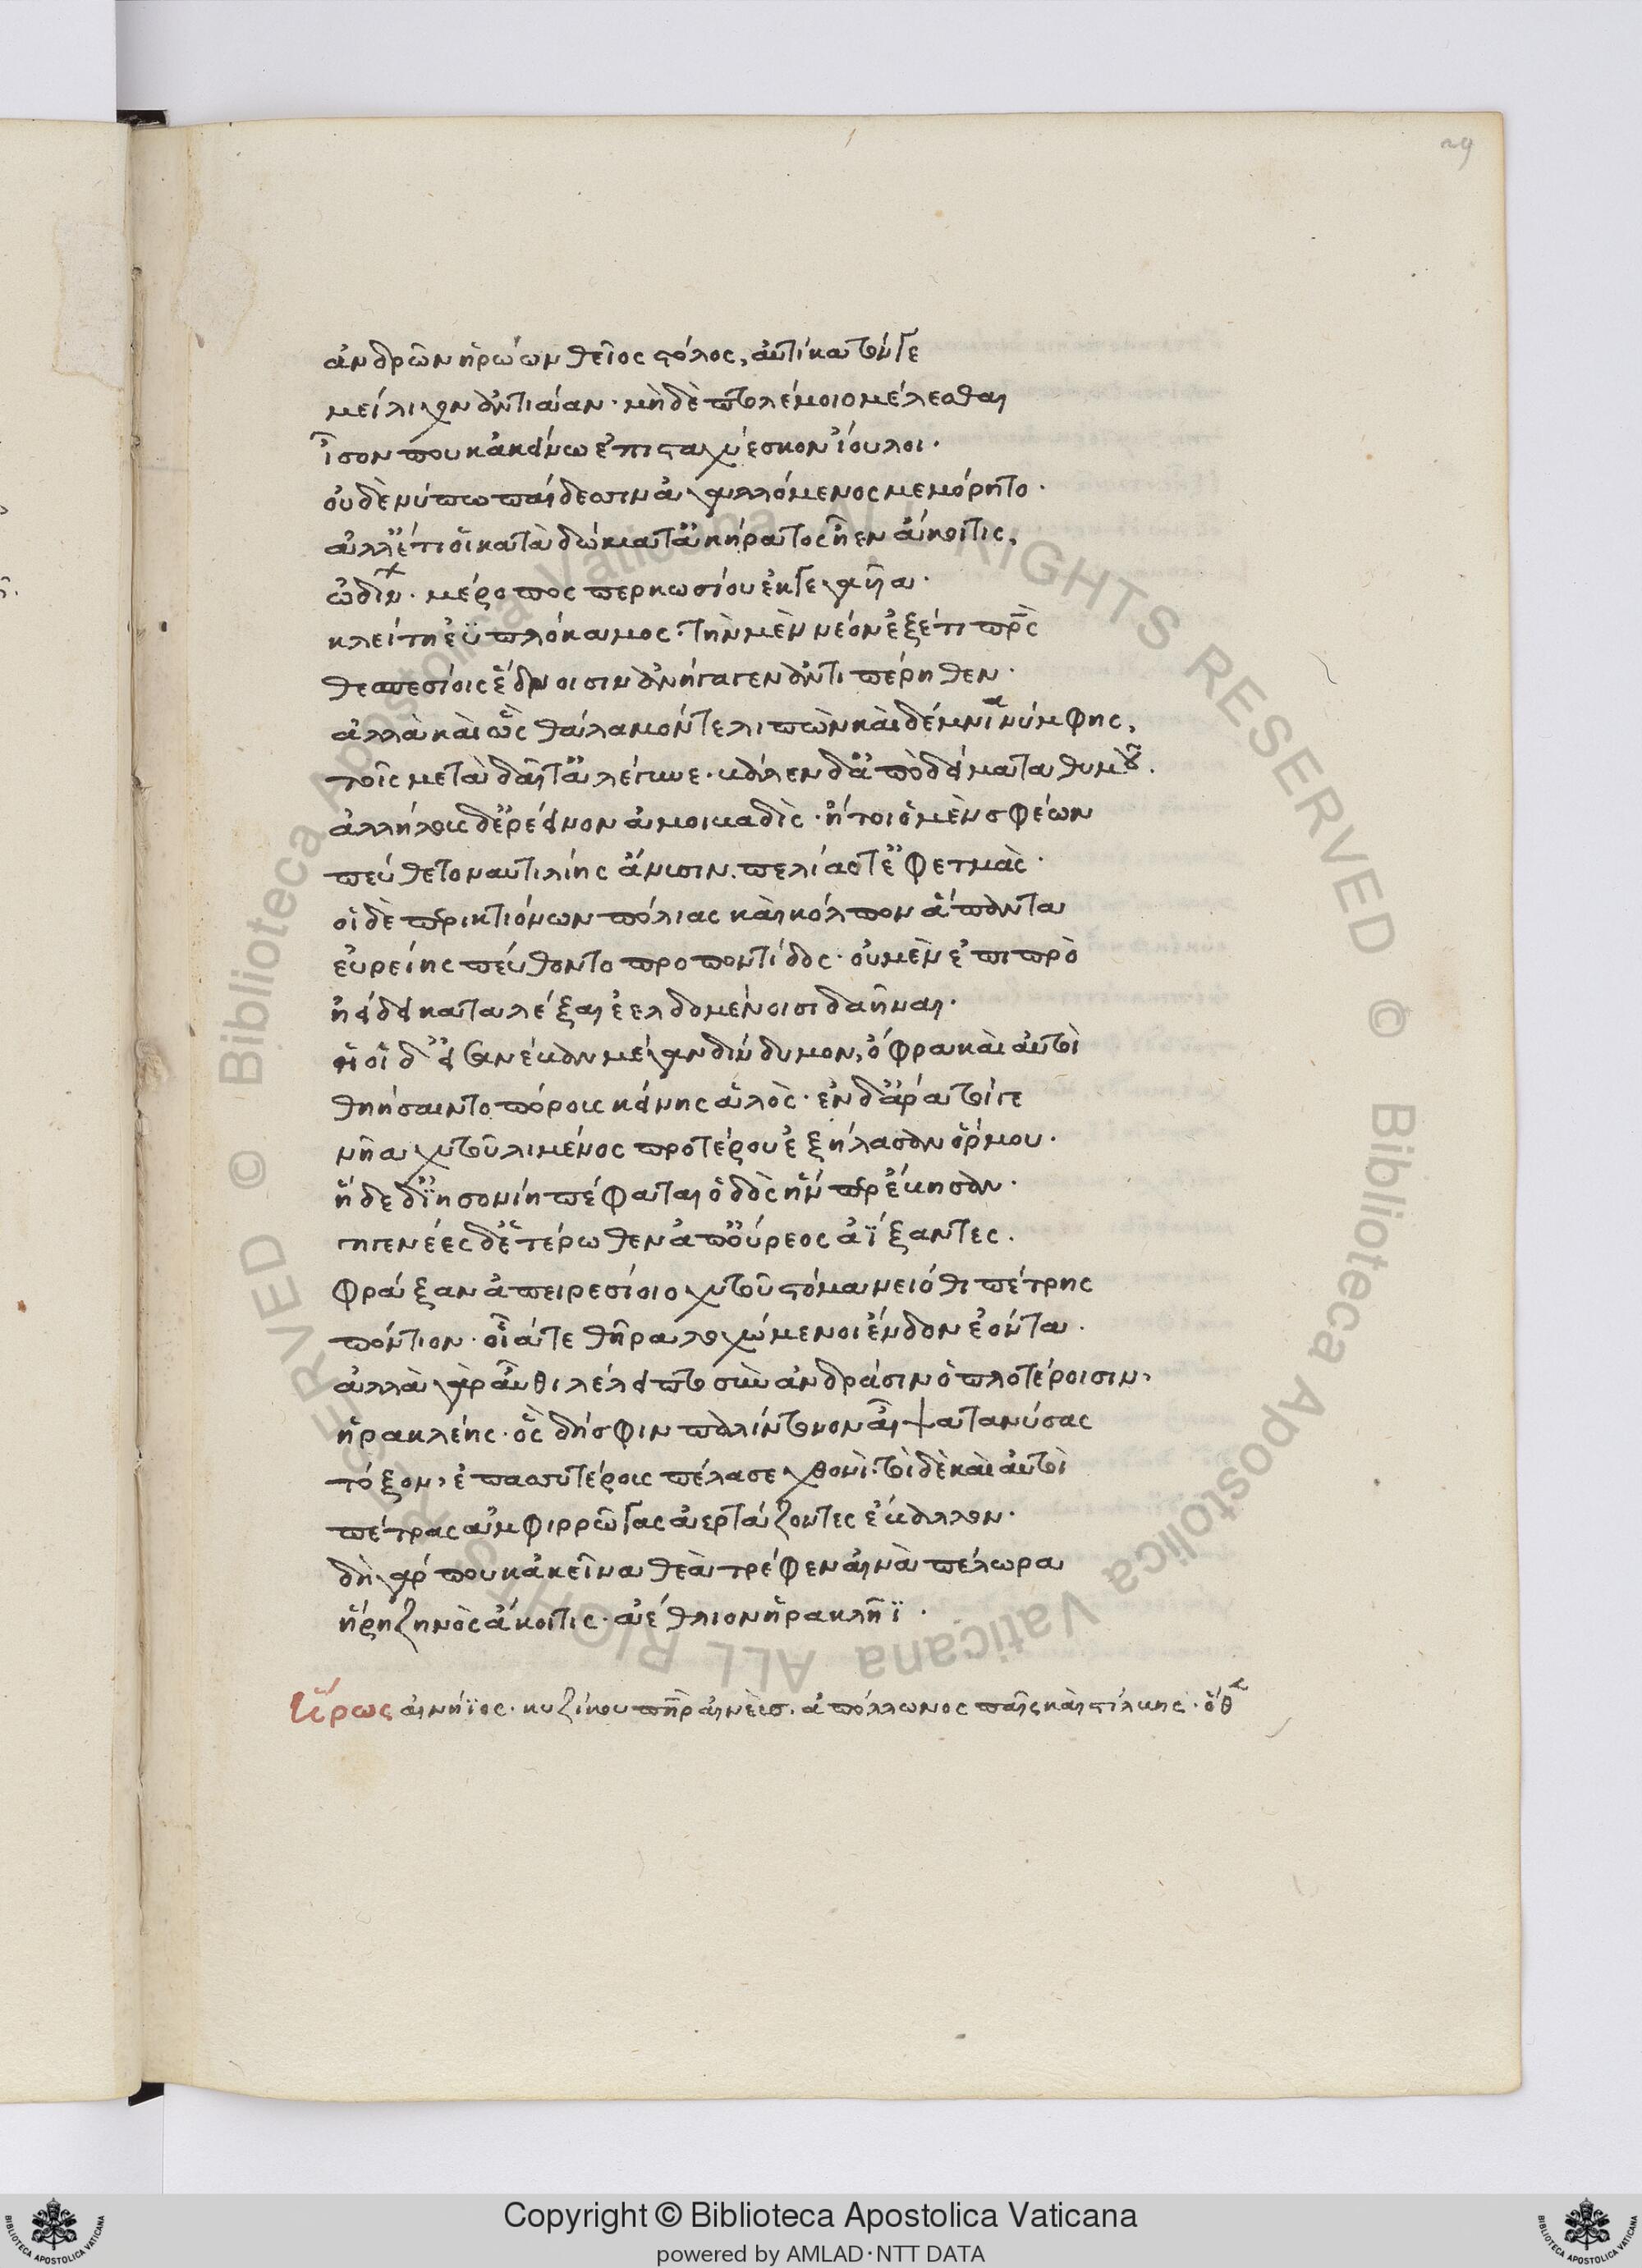 29
ἀνδρῶν ἡρώων θεῖος στόλος, αὐτίκα τόν γε
μείλιχον ἀντιάαν· μὴ δὲ πτολέμοιο μέλεσθαι
ἶσον που κἀκείνω ἐπισταχύεσκον ἴουλοι·
οὐδὲ νύ πω παίδεσσιν ἀγαλλόμενος μεμόρητο·
ἀλλ' ἔτι οἱ κατὰ δώματ' ἀκήρατος ἦεν ἄκοιτις,
ὠδίνων· μέροπος περκωσίου ἐκγεγαυῖα·
κλείτη ἐϋπλόκαμος· τὴν μὲν νέον ἐξέτι πρς
θεσπεσίοις ἕδνοισιν ἀνήγαγεν ἀντιπέρηθεν·
ἀλλὰ καὶ ὧς θάλαμόν τε λιπὼν καὶ δέμνια νύμφης,
τοῖς μετὰ δαῖτ' ἀλέγυνε· βάλεν δ' ἀπὸ δείματα θυμοῦ.
ἀλλήλους δ' ἐρέεινον ἀμοιβαδὶς· ἤτοι ὁ μὲν σφέων
πεύθετο ναυτιλίης ἄνυσιν. πελίαό τ' ἐφετμὰς·
οἱ δὲ περικτιόνων πόλιας καὶ κόλπον ἅπαντα
εὐρείης πεύθοντο προποντίδος· οὐ μὲν ἐπιπρὸ
ἠείδει καταλέξαι ἐελδομένοισι δαῆναι·
ἠοῖ δ' εἰσανέβαν μέγαν δίνδυμον, ὄφρα καὶ αὐτοὶ
θηήσαιντο πόρους κείνης ἁλὸς· ἐν δ' ἄρα τοίγε
νῆα χυτοῦ λιμένος προτέρου ἐξήλασαν ὅρμου·
ἥδε δ' ἰησονίη πέφαται ὁδὸς ἥν περ ἔβησαν·
γηγενέες δ' ἑτέρωθεν ἀπ' οὔρεος ἀΐξαντες.
φράξαν ἀπειρεσίοιο χυτοῦ στόμα νειόθι πέτρης
πόντιον· οἷά τε θῆρα λοχώμενοι ἔνδον ἐόντα.
ἀλλὰ γὰρ αὖθι λέλειπτο σὺν ἀνδράσιν ὁπλοτέροισιν,
ἡρακλέης· ὃς δή σφιν παλίντονον αἶψα τανύσας
τόξον, ἐπασσυτέρους πέλασε χθονί· τοὶ δὲ καὶ αὐτοὶ
πέτρας ἀμφιρρῶγας ἀερτάζοντες ἔβαλλον·
δὴ γάρ που κἀκεῖνα θεὰ τρέφεν αἰνὰ πέλωρα
ἥρη ζηνὸς ἄκοιτις· ἀέθλιον ἡρακλῆϊ·
Ἥρως αἰνήϊος· κυζίκου πηρ αἰνεὺς. ἀπόλλωνος παῖς καὶ στίλβης· ὅθ